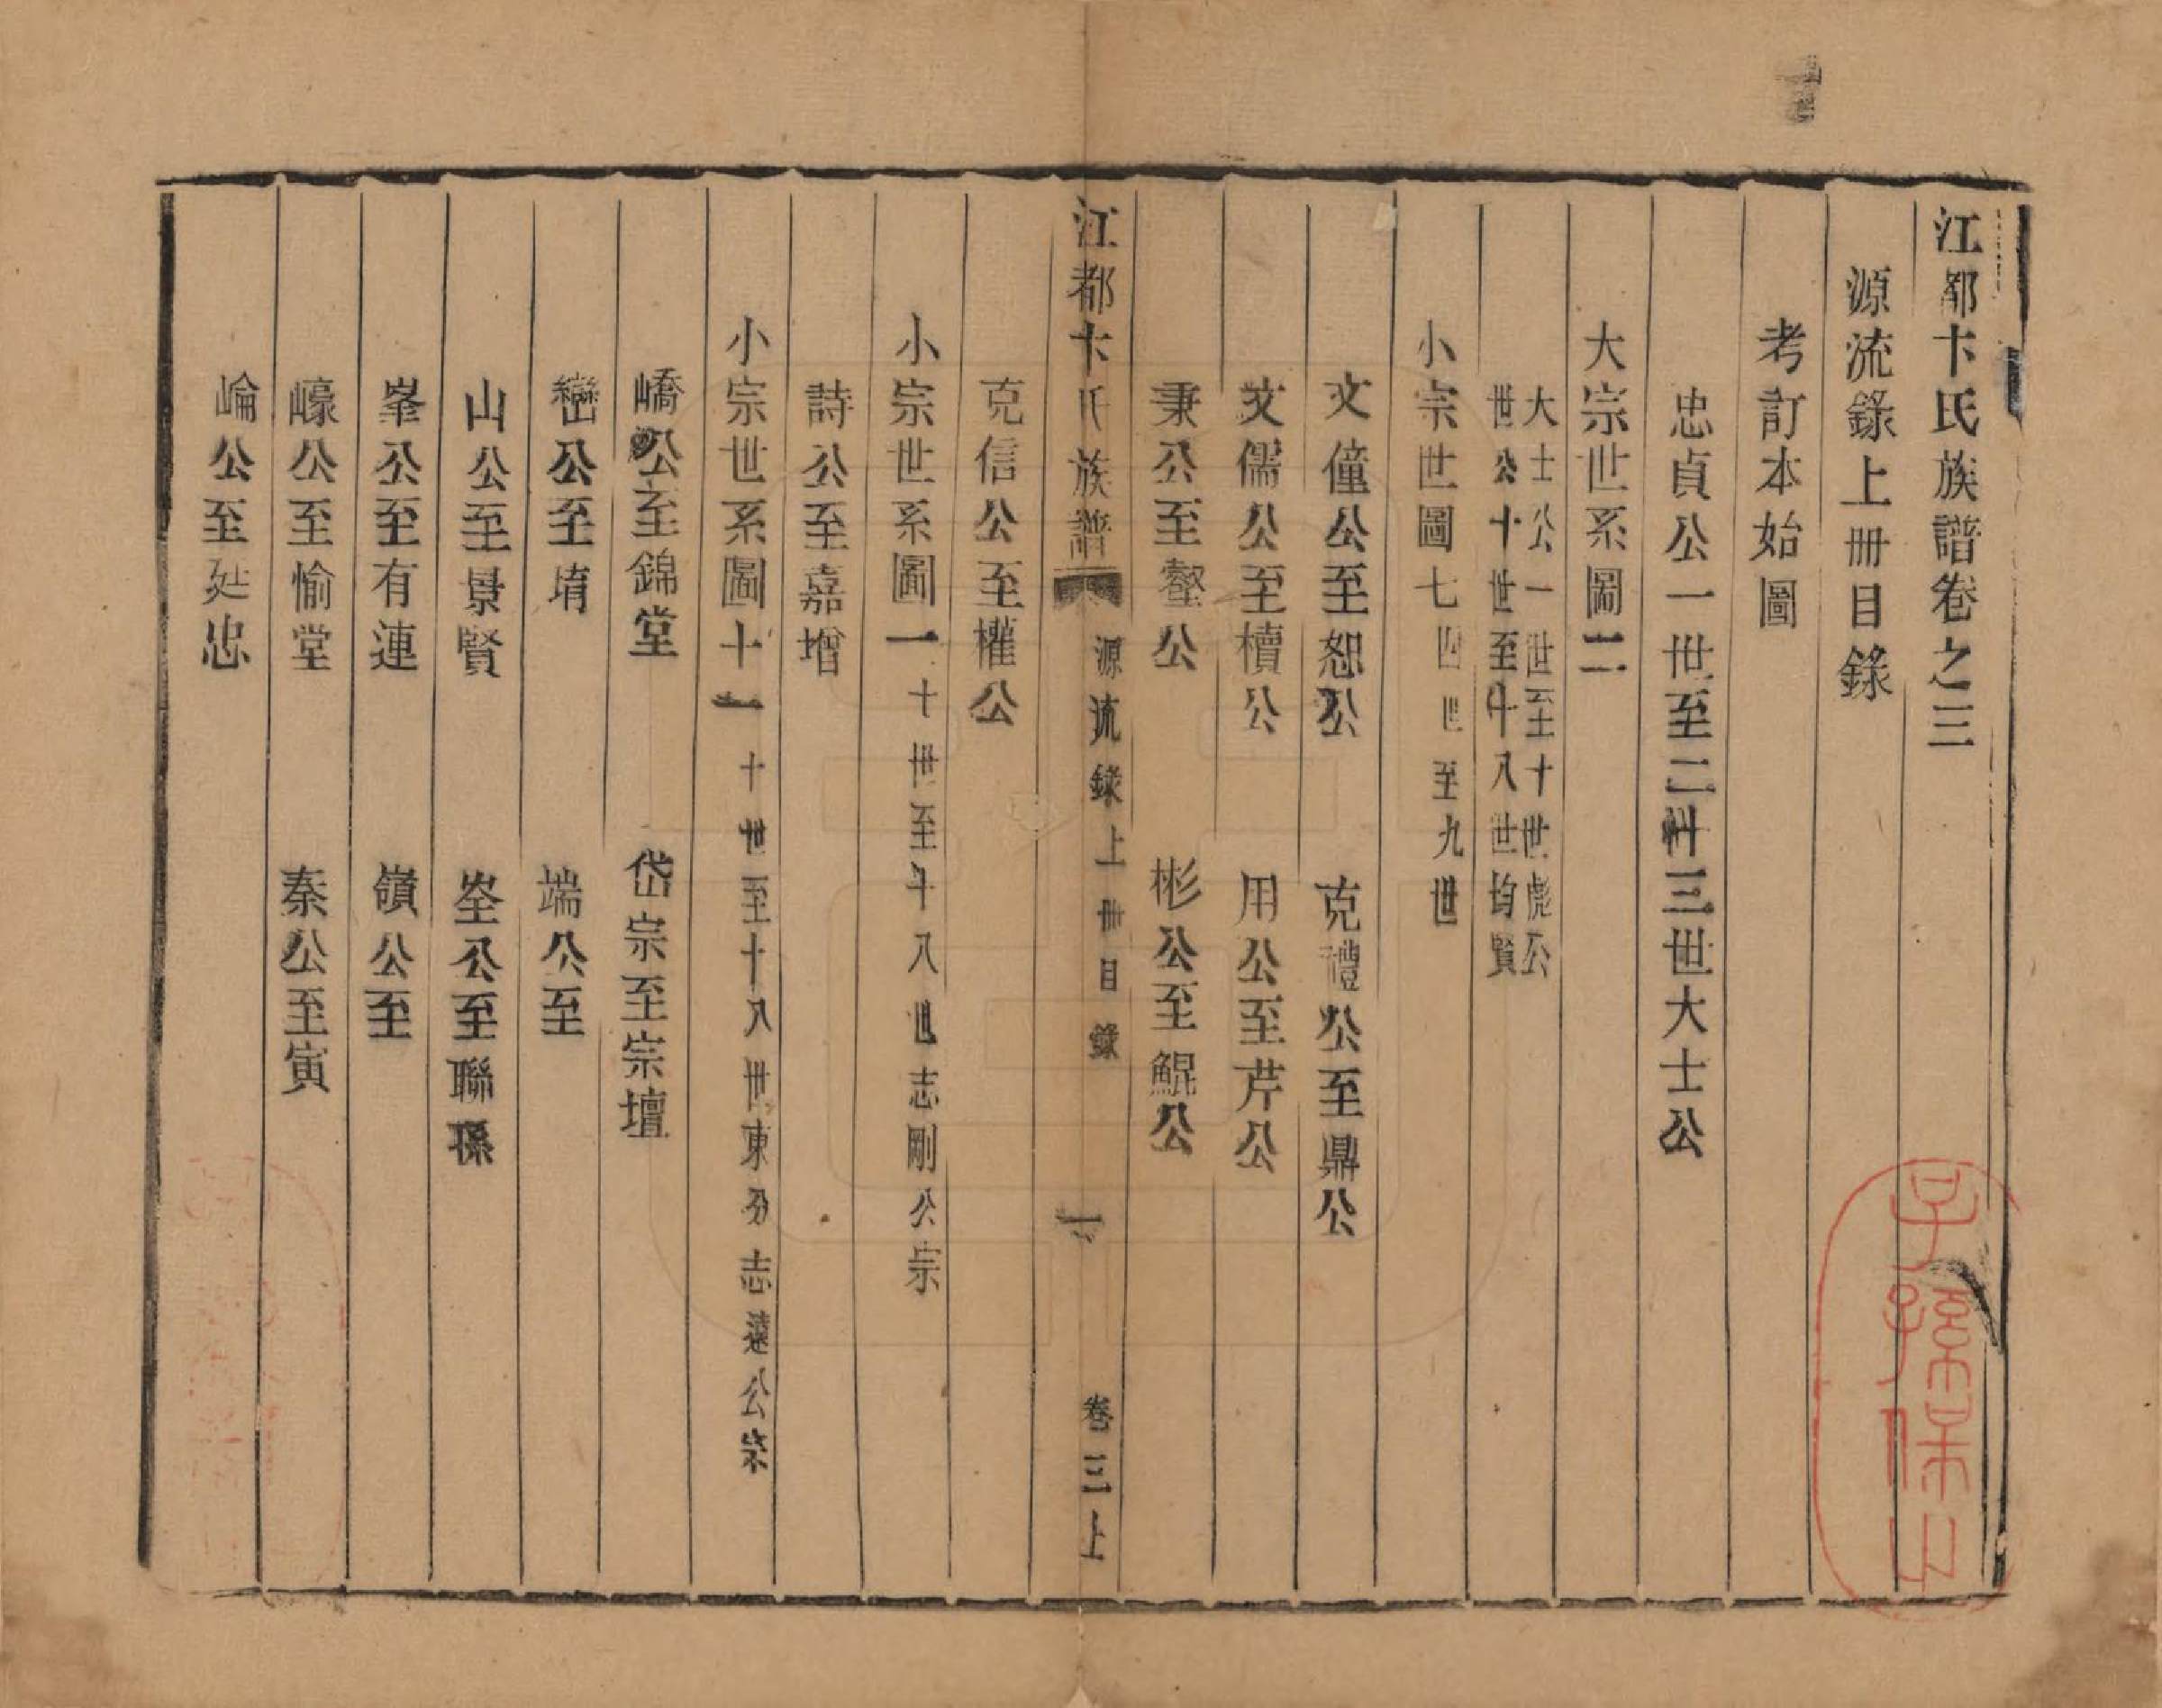 江都卞氏族譜卷之三
源流錄上冊目錄
考訂本始圖
忠貞公一世至二卅三世大士公
大宗世系圖二
大士公一世至十世彪公
世公十世至十八世均賢
小宗世圖七四世至九世
文僮公至恕公 克禮公至鼎公
文儒公至櫝公 用公至芹公
秉公至鏊公 彬公至鯤公
江都卞氏族譜 源流錄上冊目錄 一 卷三上
克信公至權公
小宗世系圖一十世至十八世志剛公宗
詩公至嘉增
小宗世系圖十一十世至十八世東分志遠公宗
嶠公至錦堂 岱宗至宗壇
巒公至堉 端公至
山公至景賢 峑公至聯孫
峯公至有連 嶺公至
嶑公至愉堂 秦公至寅
崘公至廷忠
子孫保之